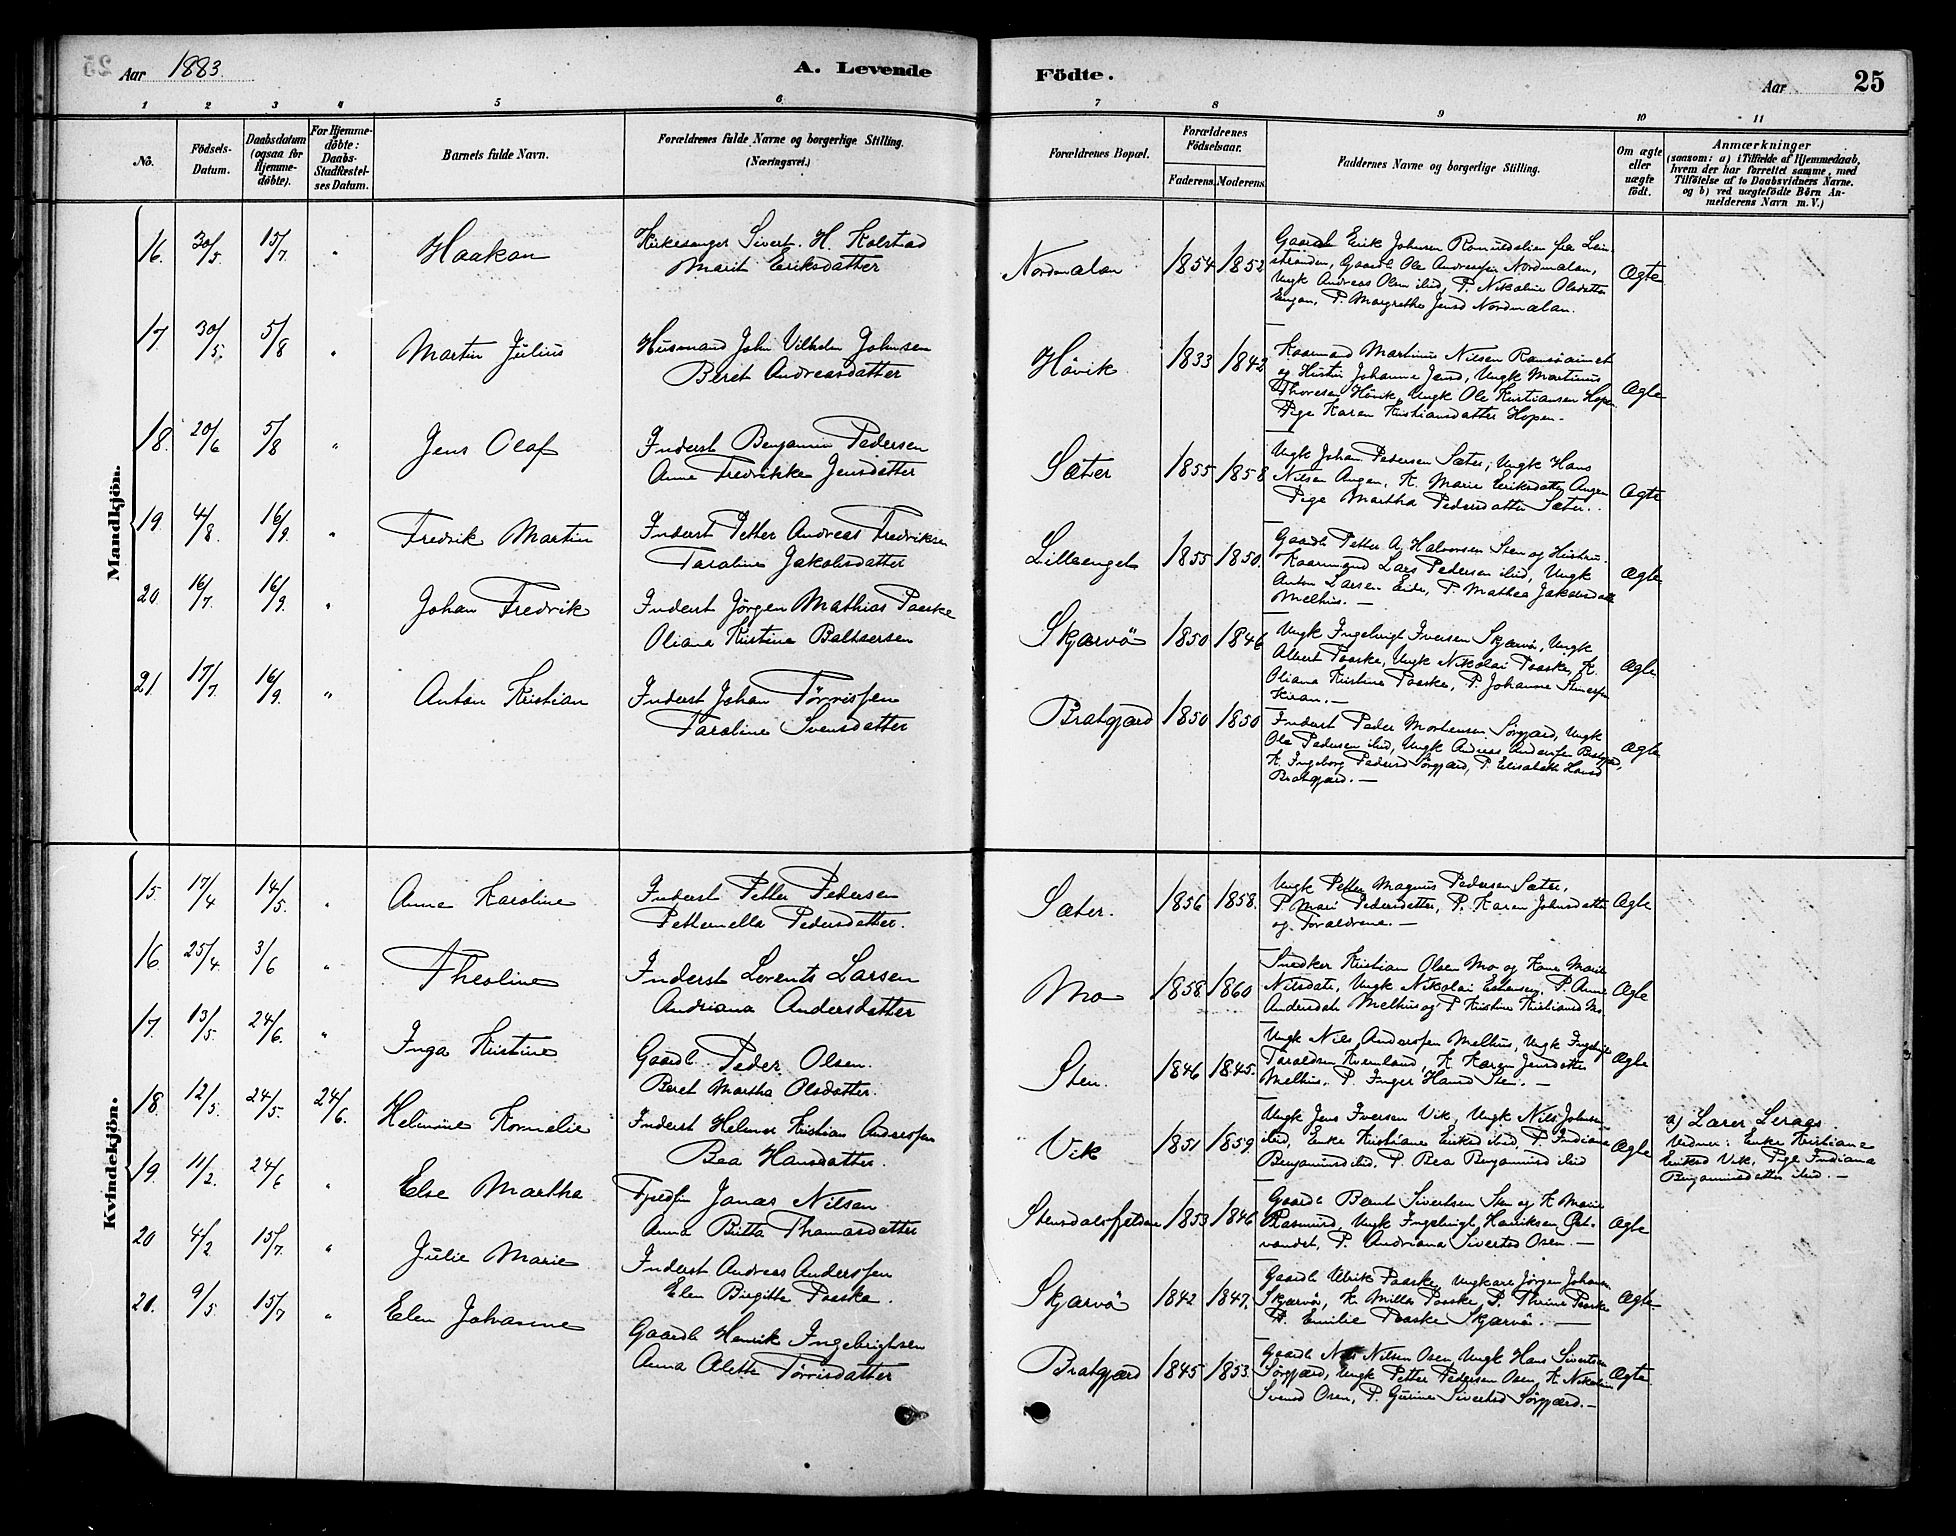 Aar 1883.
A. Levende
Födte.
Aar
25
1 2 3 4 5 6 7 8 9 10 11
No.
Födsels-
Datum.
Daabsdatum
(ogsaa for
Hjemme-
döbte).
For Hjemme-
döbte:
Daabs-
Stadfæstel-
ses Datum.
Barnets fulde Navn.
Forældrenes fulde Navne og borgerlige Stilling.
(Næringsvei.)
Forældrenes Bopæl.
Forældrenes
Födselsaar.
Faderens. Moderens.
Faddernes Navne og borgerlige Stilling.
Om ægte
eller
uægte
födt.
Anmærkninger
(saasom: a) i Tilfælde af Hjemmedaab,
hvem der har forrettet samme, med
Tilföielse af to Daabsvidners Navne.
og b) ved uægtefödte Börn An-
melderens Navn m. V.)
Mandkjön.
16. 30/5 15/7 " Haakon
Kirkesanger Sivert. H. Kolstad
Marit Eriksdatter
Nordmalan 1854 1852
Gaardb Erik Johnsen Romuldalien fra Lein-
stranden, Gaardb Ole Andressen Nordmalan,
Ungk Andreas Olsen ibid, P. Nikoline Olsdatter
Engan, P. Margrethe Jensd Nordmalan.
Ægte
17 30/5. 5/8 " Martin Julius
Husmand John Vilhelm Johnsen
Beret Andreasdatter
Hövik 1833 1842
Kaarmand Martinus Nilsen Ramsöaunet
og Hustru Johanne Jensd, Ungk Martinus
Thoresen Hövik, Ungk Ole Kristiansen Hopen
Pige Karen Kristiansdatter Hopen.
Ægte
18. 20/6 5/8 " Jens Olaf
Inderst Benjamin Pedersen
Anne Fredrikke Jensdatter
Sæter 1855 1858
Ungk Johan Pedersen Sæter, Ungk Hans
Nilsen Angen, K. Marie Eriksdatter Angen
Pige Martha Pedersdatter Sæter.
Ægte
19. 4/8. 16/9. " Fredrik Martin
Inderst Petter Andreas Fredriksen
Karoline Jakobsdatter
Lilleenget 1855 1850.
Gaardb Petter A. Halvorsen Sten og Hustru.
Kaarmand Lars Pedersen ibid, Ungk
Anton Larsen Eide, P. Mathea Jakobsdatt
Melhus. —
Ægte
20. 16/7. 16/9. " Johan Fredrik
Inderst Jörgen Mathias Paaske
Oliana Kristine Baltsersen
Skjærvö 1850 1846
Ungk Ingebrigt Iversen Skjærvö, Ungk
Albert Paaske, Ungk Nikolai Paaske, K.
Oliana Kristine Paaske, P. Johanne
Kiran. —
Ægte.
21. 17/7 16/9. " Anton Kristian
Inderst Johan Törrissen
Karoline Svensdatter
Bratgjærd 1850 1850
Inderst Peder Mortensen Sörgjærd, Ungk
Ole Pedersen ibid, Ungk Andreas Anderssen Bratgjærd,
K. Ingeborg Pedersd Sörgjærd, P. Elisabeth Hansd
Bratgjærd. —
Ægte
Kvindekjön.
15. 17/4 14/5. " Anne Karoline
Inderst Petter Pedersen
Petternella Pedersdatter.
Sæter. 1856 1858.
Ungk Petter Magnus Pedersen Sæter,
P. Mari Pedersdatter, P. Karen Johnsdatter
og Foraldrene. —
Ægte
16. 25/4. 3/6 " Theoline
Inderst Lorents Larsen
Andriana Andersdatter
Mo 1858. 1860
Snedker Kristian Olsen Mo og Kone Marie
Nilsdatr, Ungk Nikolai Estensen, P. Anne
Andersdatr Melhus og P. Kristine Kristiansd Mo.
Ægte
17. 13/5. 24/6. " Inga Kristine
Gaardb. Peder Olsen.
Beret Martha Olsdatter.
Sten. 1846 1845.
Ungk Nils Anderssen Melhus, Ungk Ingebrigt
Taraldsen Kvernland, K. Karen Jensdatter
Melhus, P. Inger Hansd Sten. —
Ægte
18. 12/5. 24/5. 24/6. Helmine Kornelie
Inderst Helmer Kristian Anderssen
Bea Hansdatter.
Vik 1851 1859.
Ungk Jens Iversen Vik, Ungk Nils Johnsen
ibid, Enke Kristiane Eriksd ibid, P. Indiana
Benjaminsd ibid. P. Bea Benjaminsd ibid
Ægte
a) Lærer Leraas.
Vidner: Enke Kristiane
Eriksd Vik, Pige Indiana
Benjaminsdatter ibid. —
19. 11/2. 24/6 " Else Martha
Jonas Nilsen
Anna Britta Thomasdatter
Stensdalsfjeldene 1853 1846
Gaardb Bernt Sivertsen Sten og K. Marie
Rasmusd, Ungk Ingebrigt Henriksen
vandet, P. Andriana Sivertsd Osen. —
Ægte
20 4/2 15/7. " Julie Marie
Inderst Andreas Anderssen
Elen Birgitte Paaske.
Skjærvö 1842 1847.
Gaardb Ulrik Paaske, Ungkarl Jörgen Johans
Skjærvö, K. Milla Paaske, P. Thrine Paaske
P. Emilie Paaske Skjærvö. —
Ægte
21. 9/5 15/7 " Elen Johanne
Gaardb Henrik Ingebrigtsen
Anna Alette Törrisdatter
Bratgjærd 1845 1853.
Gaardb Nils Nilsen Osen, Ungk Hans Sivertsen
Sörgjærd, Ungk Petter Pedersen Osen, K. Nikoline
Svensd Osen, P. Gurine Sivertsd Sörgjærd. —
Ægte